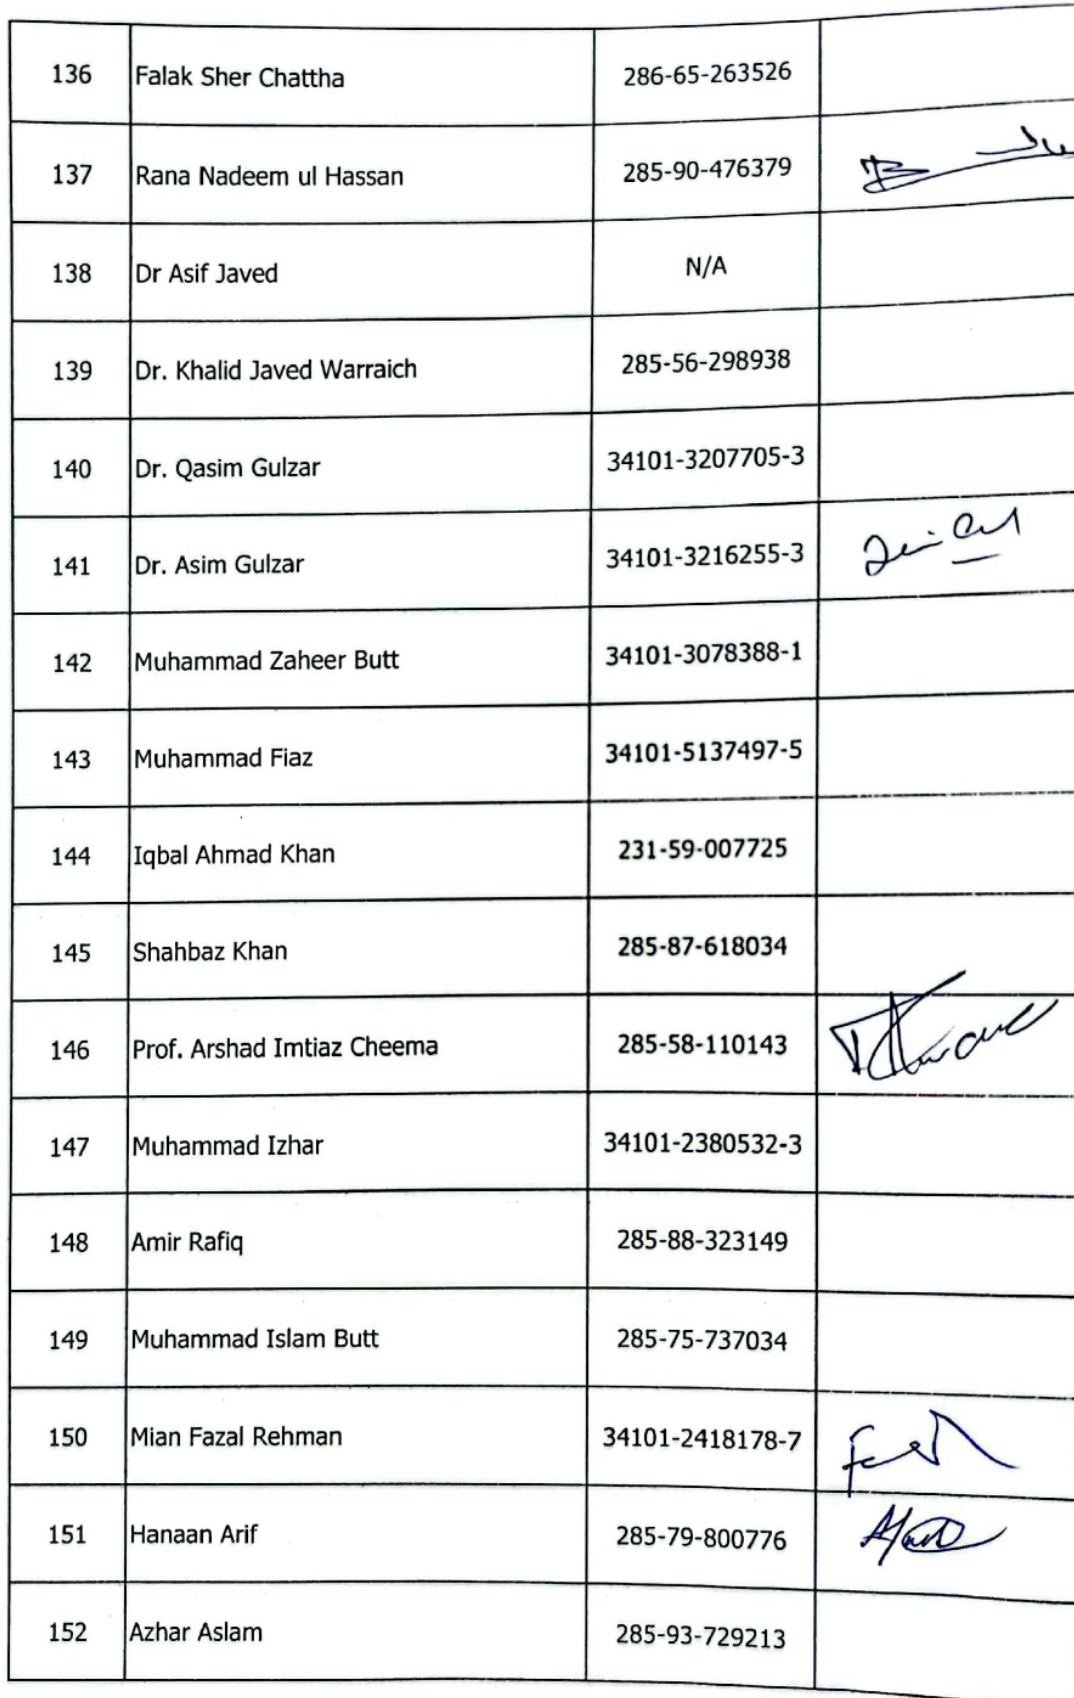 136 Falak Sher Chattha 286-65-263526
137 Rana Nadeem ul Hassan 285-90-476379
138 Dr Asif Javed N/A
139 Dr. Khalid Javed Warraich 285-56-298938
140 Dr. Qasim Gulzar 34101-3207705-3
141 Dr. Asim Gulzar 34101-3216255-3
142 Muhammad Zaheer Butt 34101-3078388-1
143 Muhammad Fiaz 34101-5137497-5
144 Iqbal Ahmad Khan 231-59-007725
145 Shahbaz Khan 285-87-618034
146 Prof. Arshad Imtiaz Cheema 285-58-110143
147 Muhammad Izhar 34101-2380532-3
148 Amir Rafiq 285-88-323149
149 Muhammad Islam Butt 285-75-737034
150 Mian Fazal Rehman 34101-2418178-7
151 Hanaan Arif 285-79-800776
152 Azhar Aslam 285-93-729213